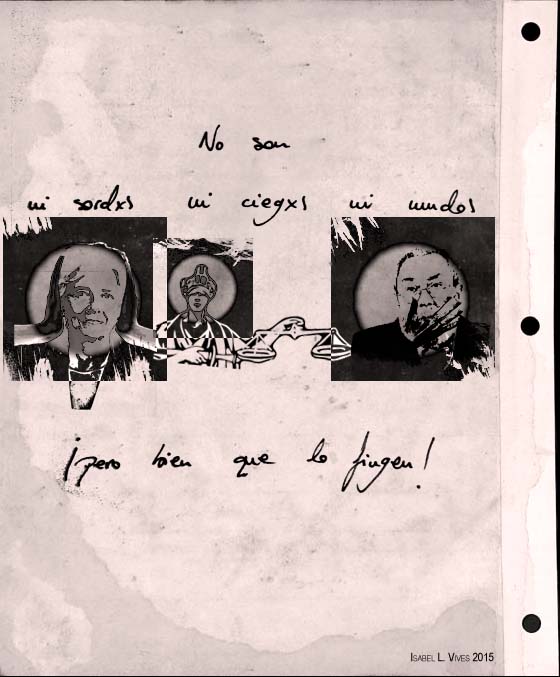 No son
ni sordxs ni ciegxs ni mudos
¡pero bien que lo fingen!
ISABEL L. VIVES 2015